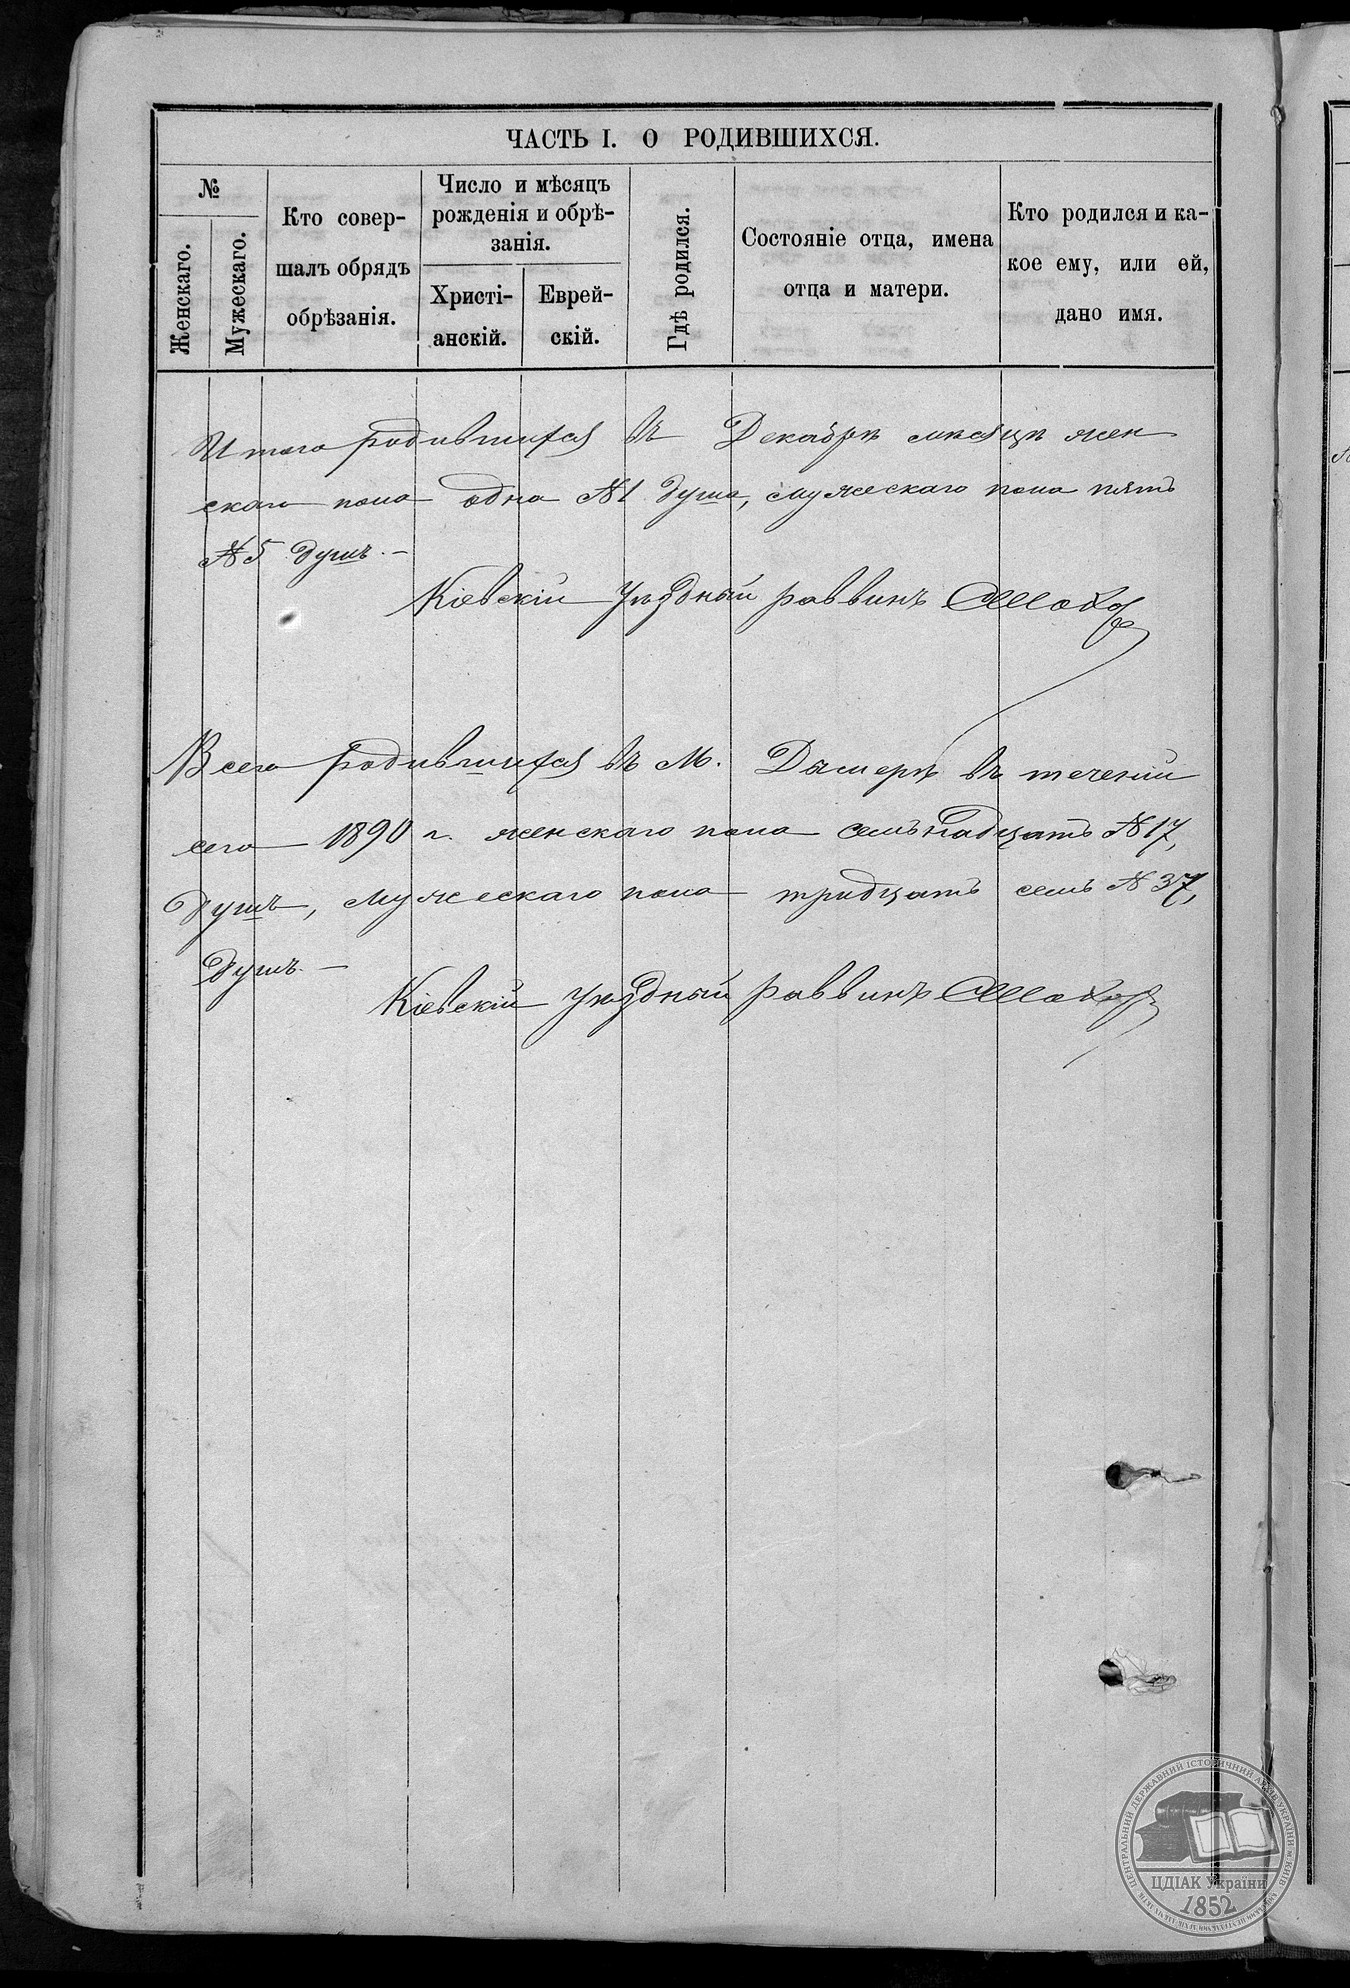 ЧАСТЬ I. О РОДИВШИХСЯ.
№
Женскаго.
Мужескаго.
Кто совер-
шалъ обрядъ
обрѣзанія.
Число и мѣсяцъ
рожденія и обрѣ-
занія.
Христі-
анскій.
Еврей-
скій.
Гдѣ родился.
Состояніе отца, имена
отца и матери.
Кто родился и ка-
кое ему, или ей,
дано имя.
Итого родившихся въ Декабрѣ мѣсяцѣ жен
скаго пола одна №1 душа, мужескаго пола пять
№5 душъ. —
Кіевскій Уѣздный раввинъ
Всего родившихся въ М. Дымерѣ въ теченіи
сего 1890 г. женскаго пола семьнадцать №17,
душъ, мужескаго пола тридцать семь №37,
душъ. —
Кіевскій Уѣздный раввинъ
ЦЕНТРАЛЬНИЙ ДЕРЖАВНИЙ ІСТОРИЧНИЙ АРХІВ УКРАЇНИ м. КИЇВ
ЦДІАК України
1852